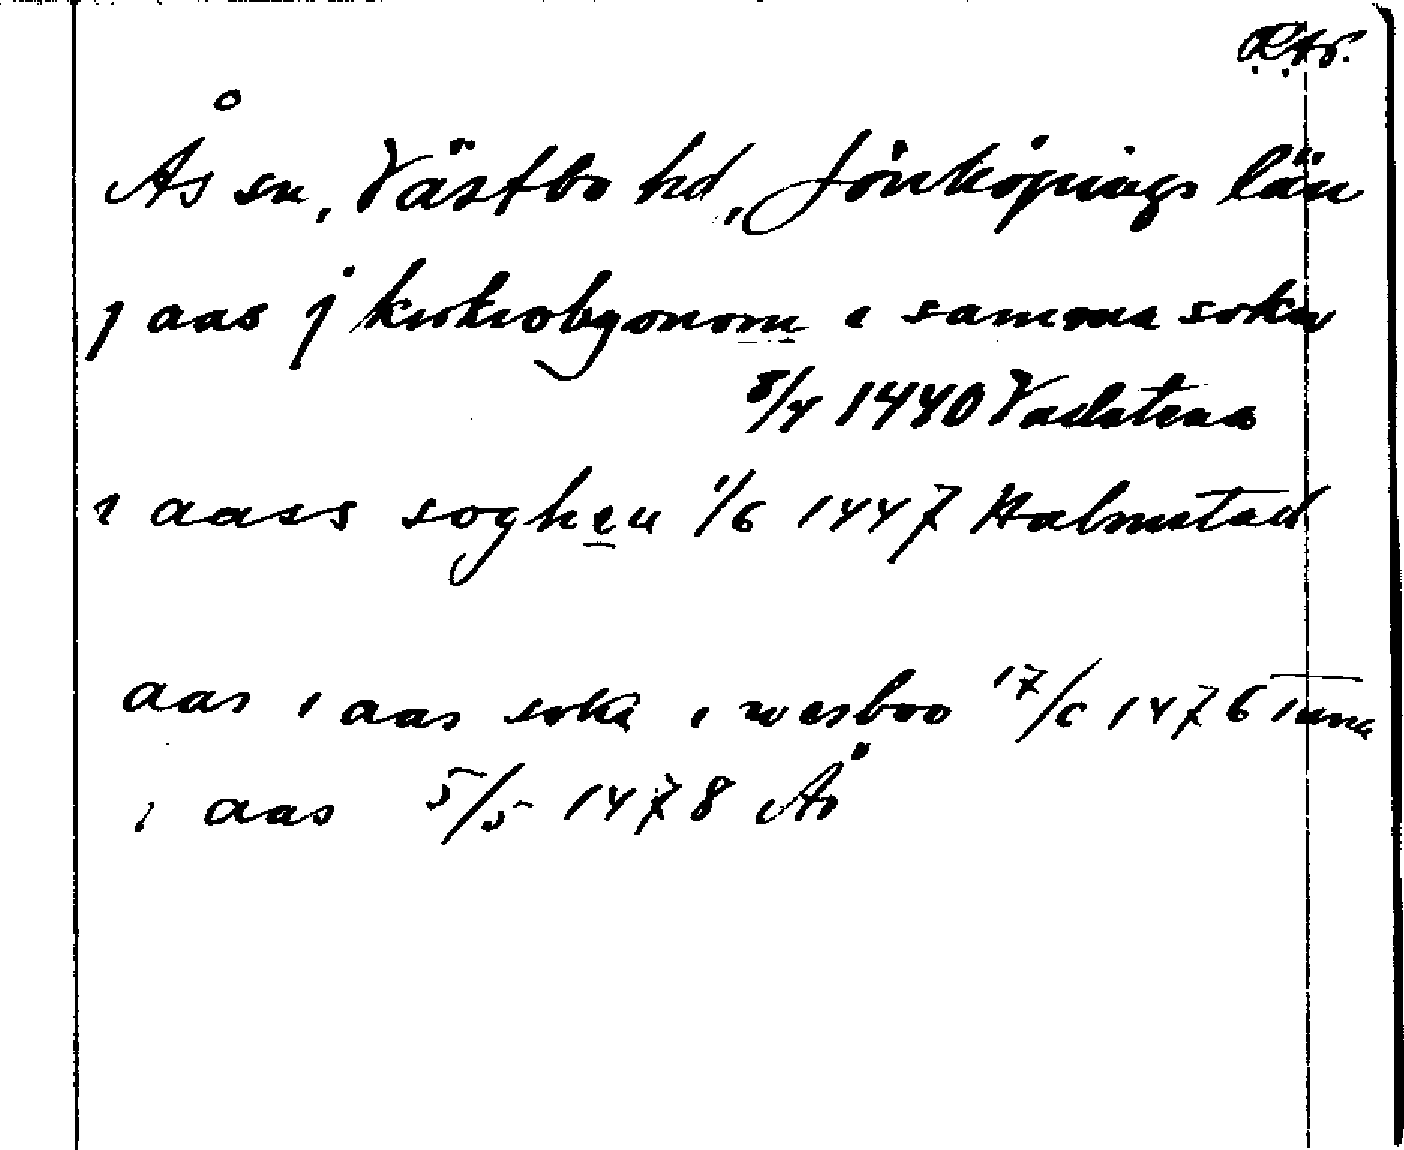 R.A.
Ås sn, Västbo hd, Jönköpings län
j aas j kirkiobyonom i samma sokn
5/4 1440 Vadstena
i aass soghen 1/6 1447 Halmstad
aas i aas sokn i wesboo 17/6 1476 Tuna
i aas 5/5 1478 Ås